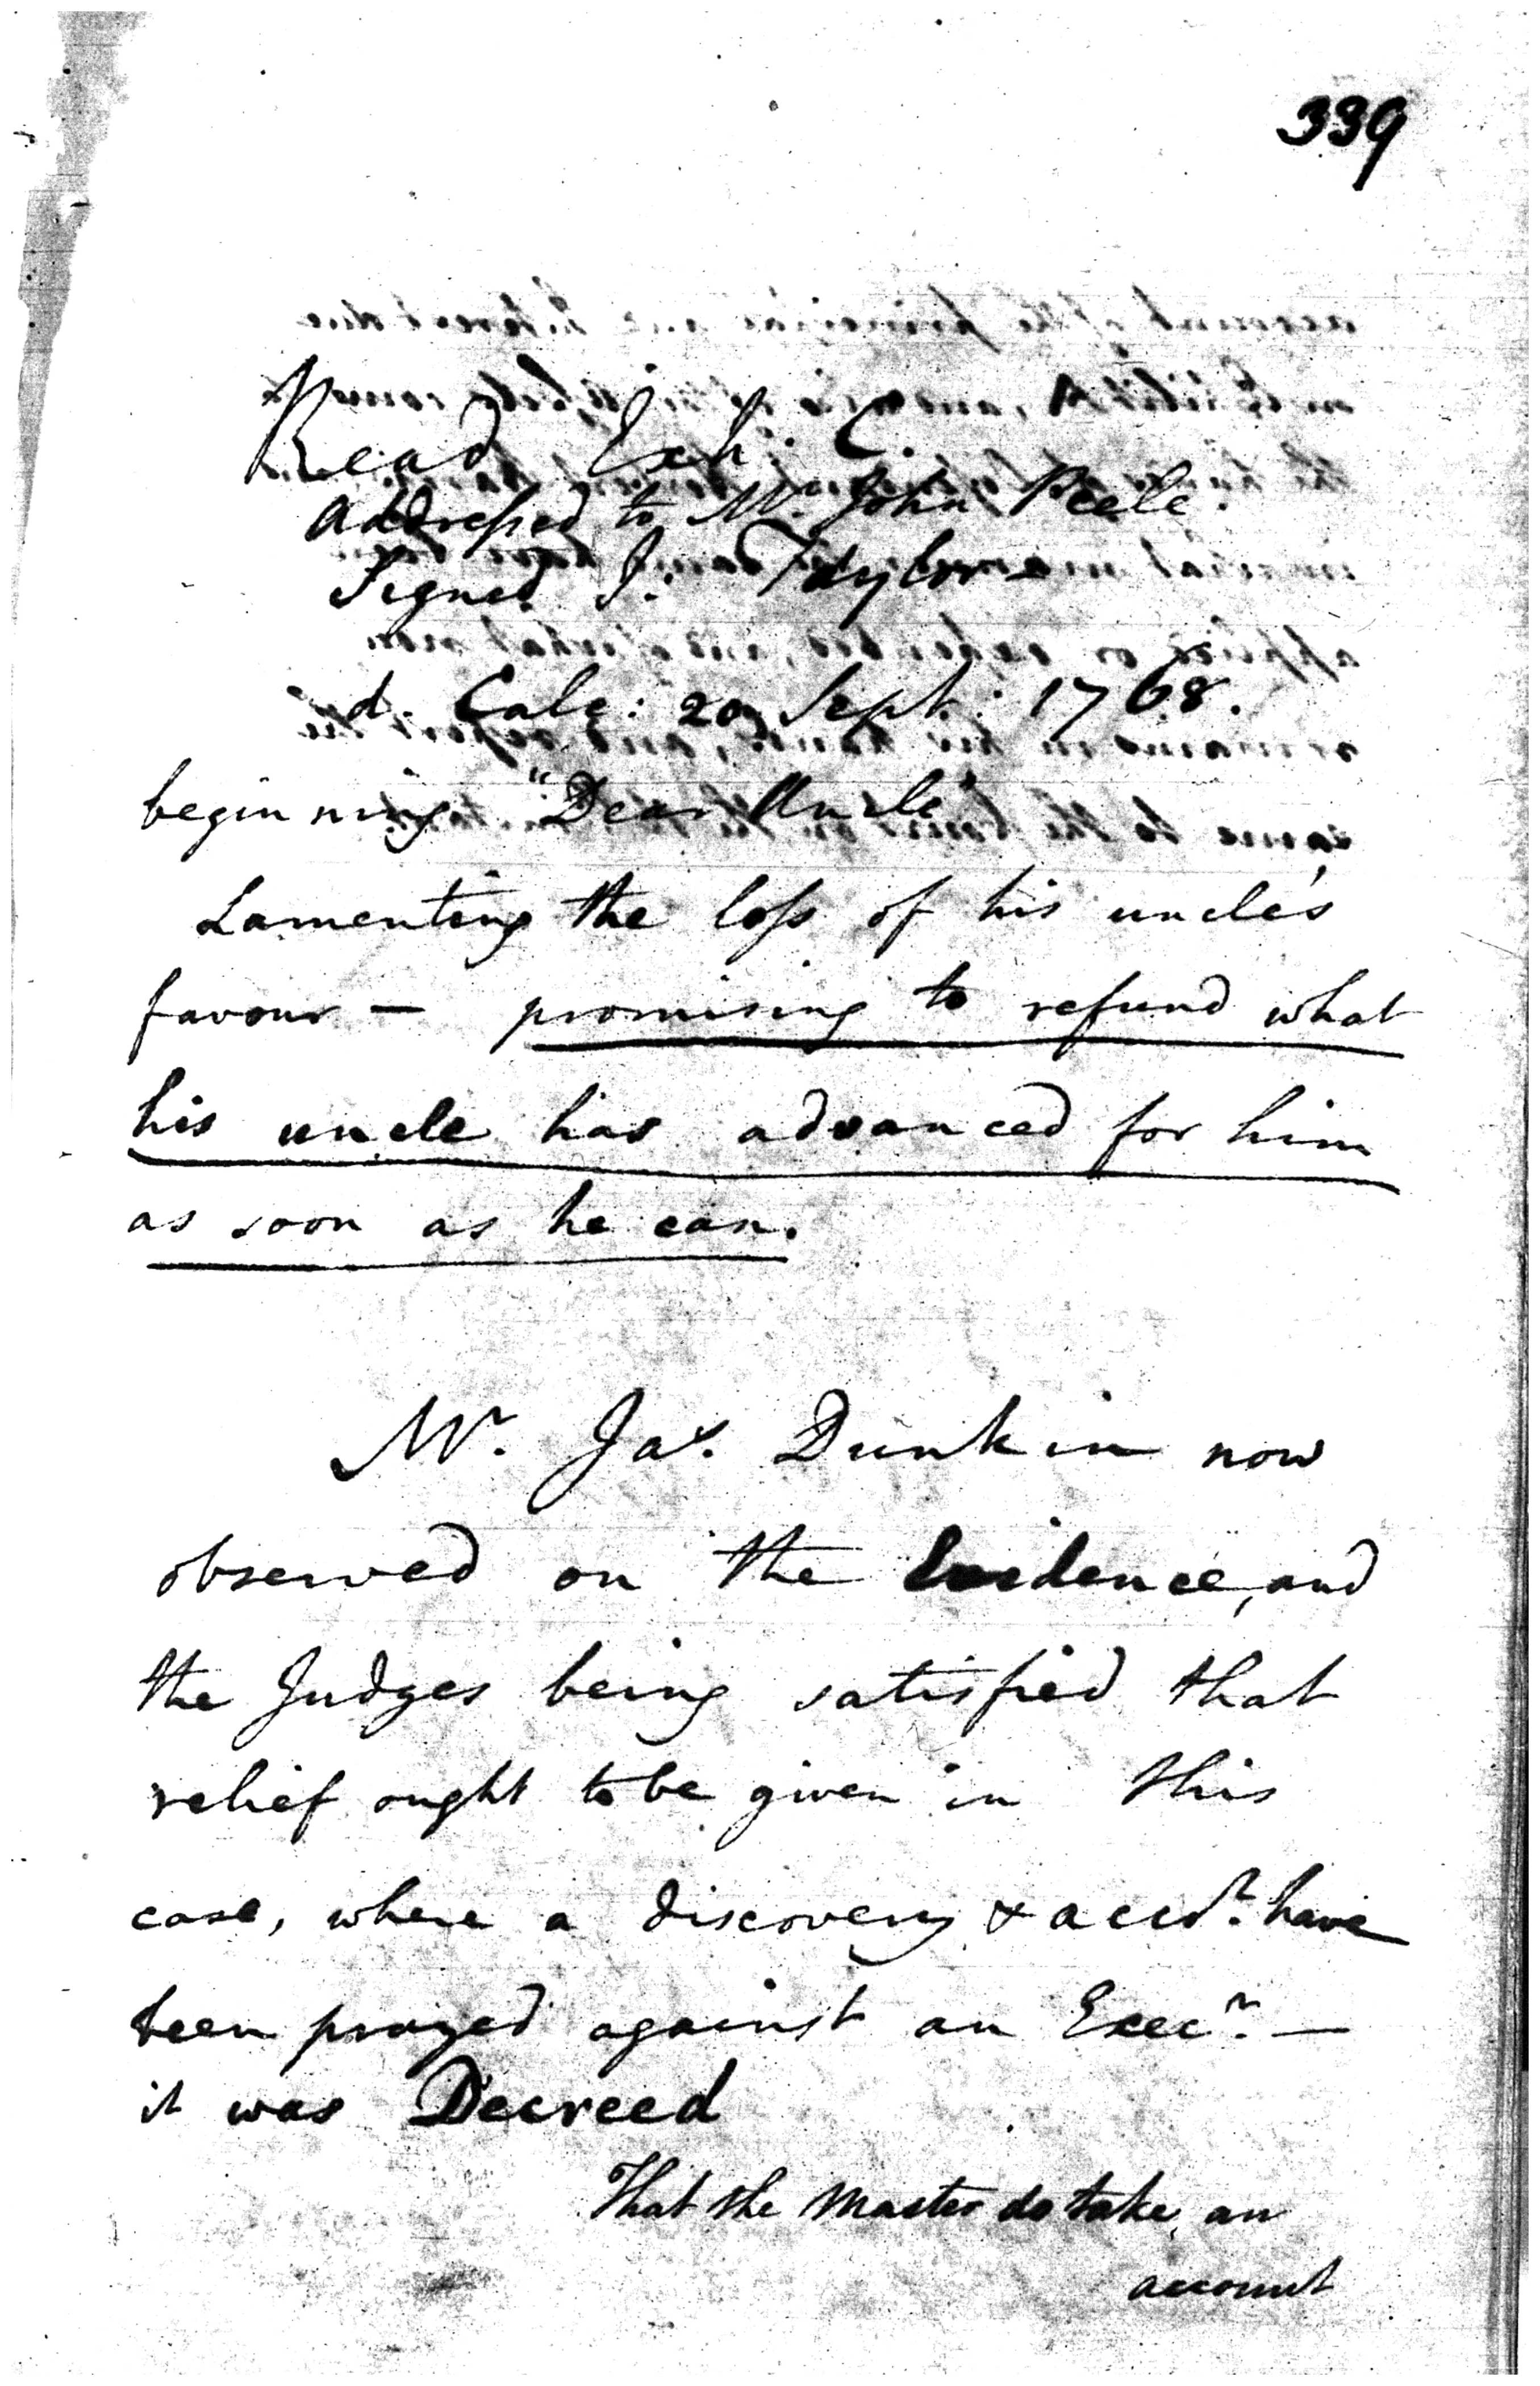 339
Read Exh. C.
Addressed to Mr. John Peele.
Signed J. Taylor
d. Calc: 20 Sept. 1768.
beginning "Dear Uncle"
Lamenting the loss of his uncle's
favour — promising to refund what
his uncle has advanced for him
as soon as he can.
Mr. Jas. Dunkin now
observed on the Evidence, and
the Judges being satisfied that
relief ought to be given in this
case, where a discovery & acct. have
been prayed against an Execr. —
it was Decreed
That the Master do take an
account